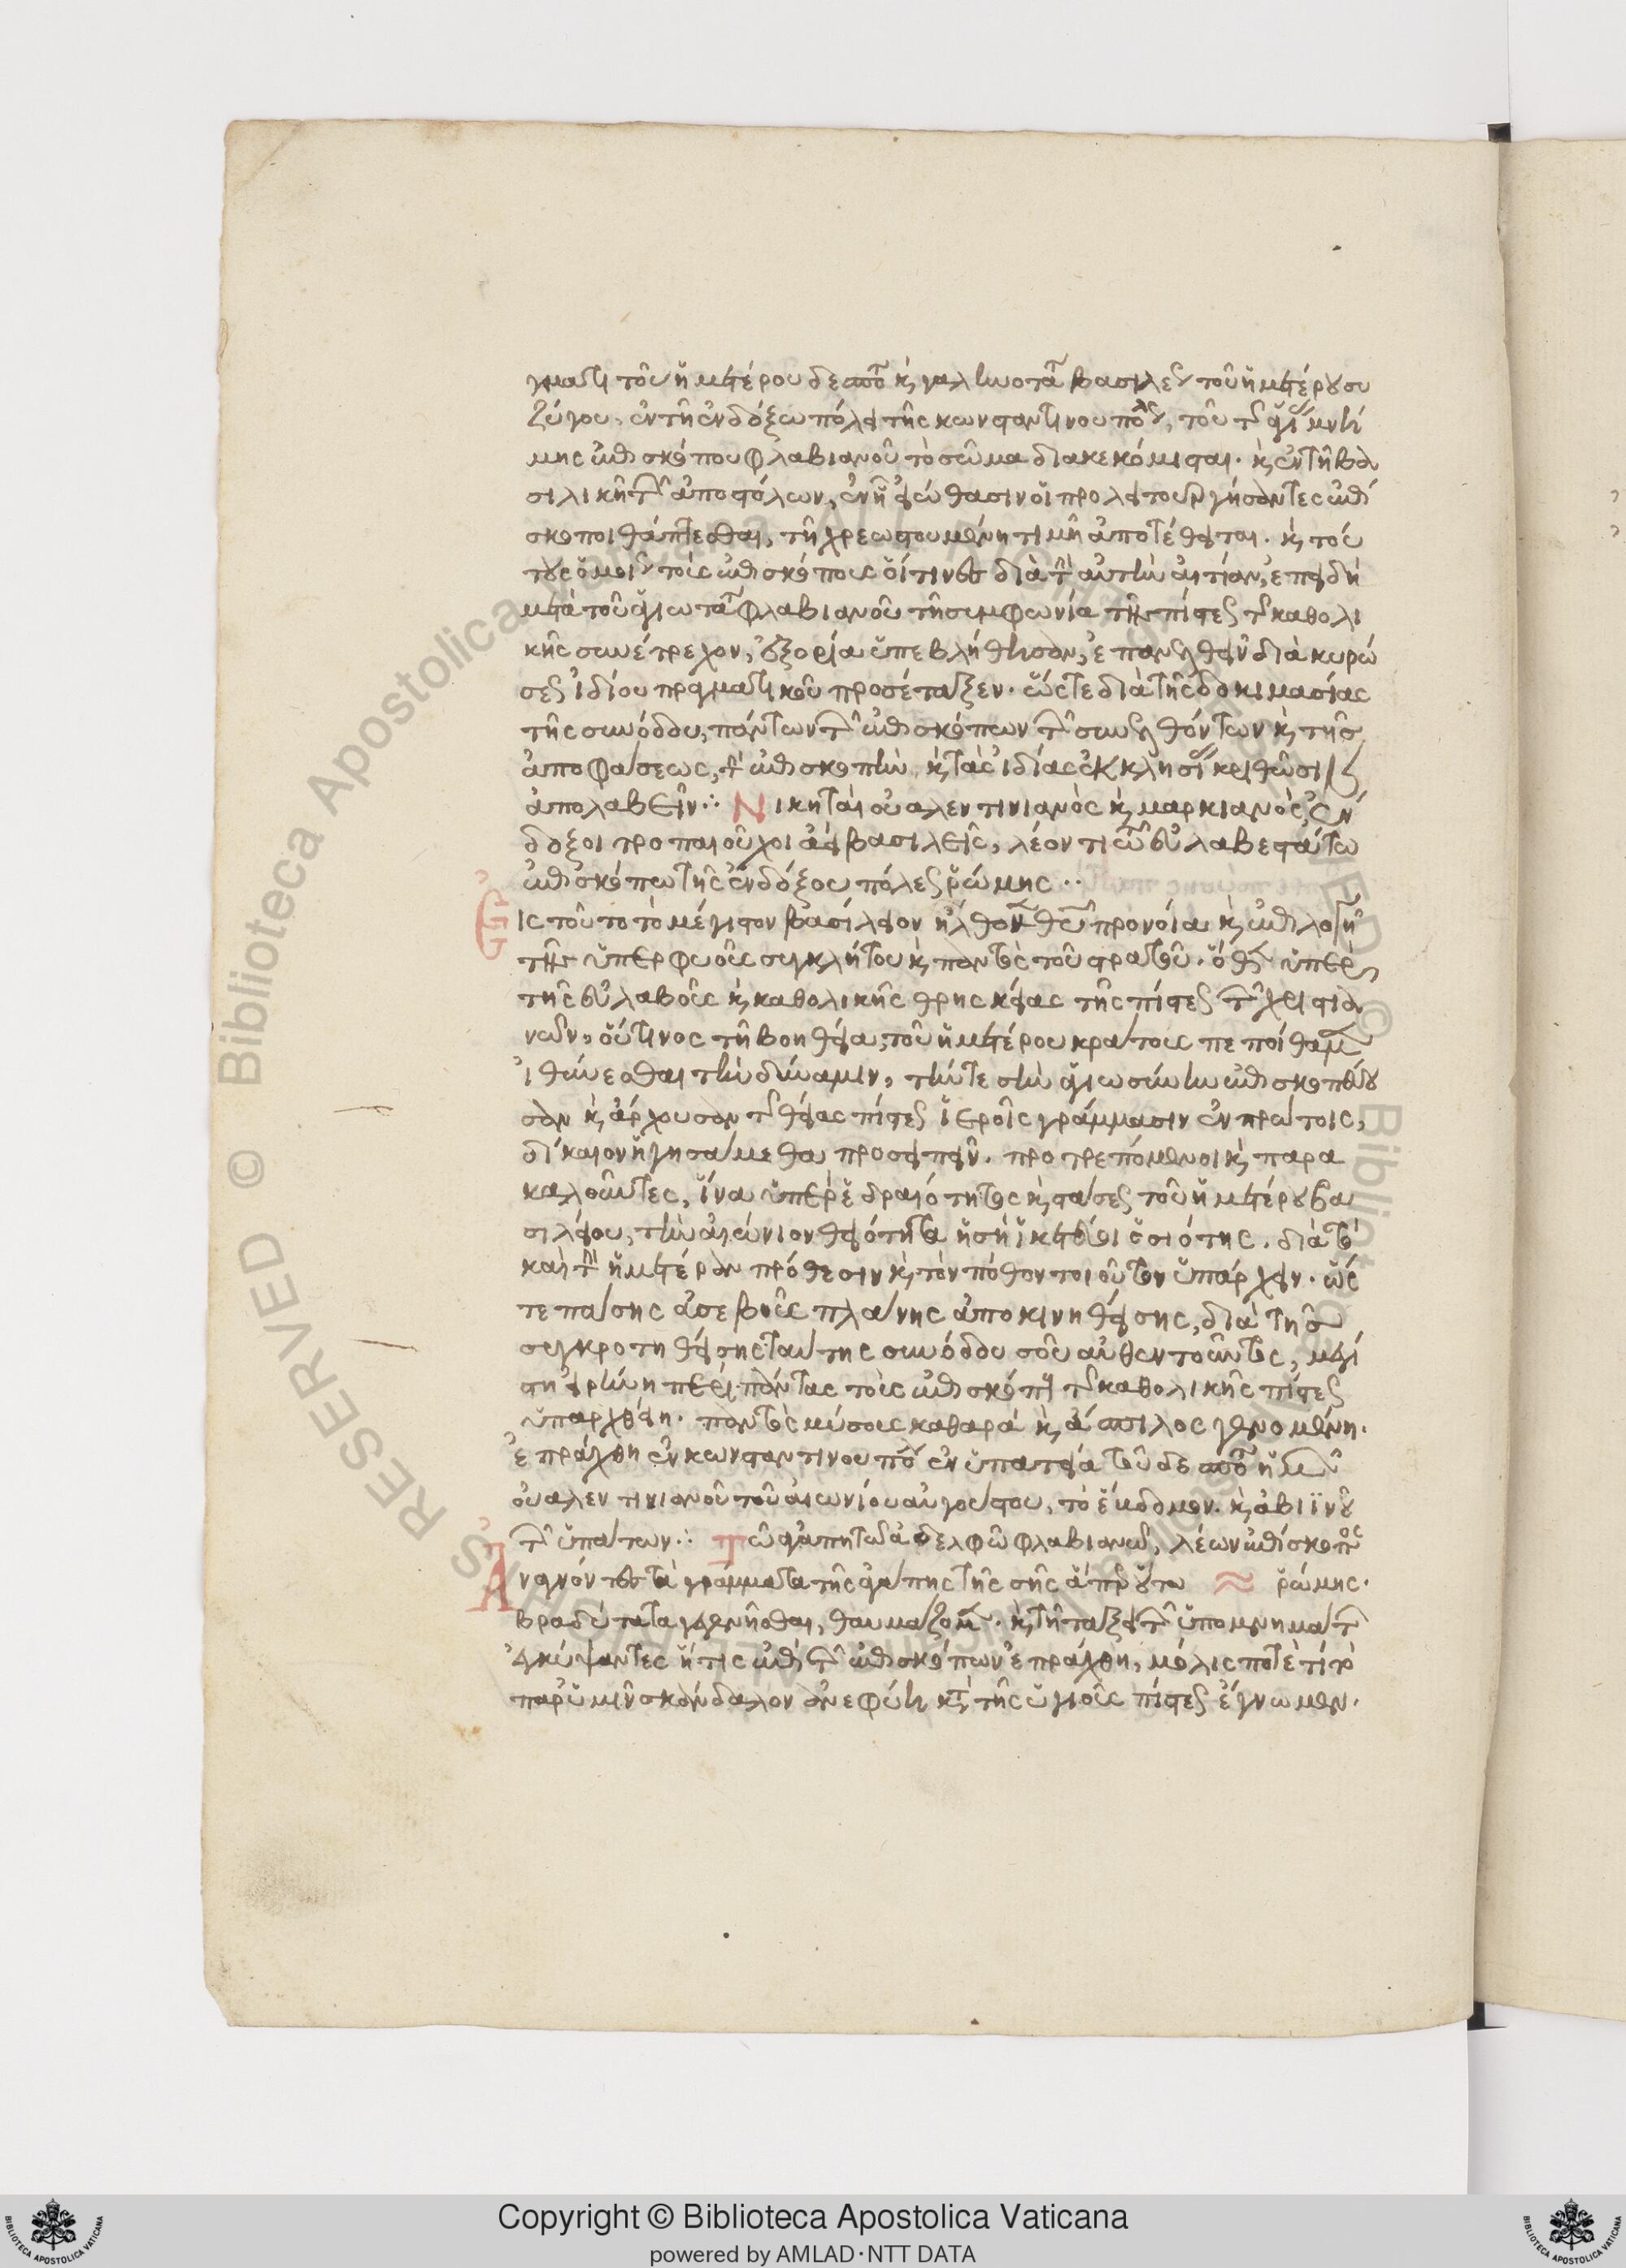 γματι τοῦ ἡμετέρου δεσπότου καὶ γαληνοτάτου βασιλέως τοῦ ἡμετέρου συ
ζύγου, ἐν τῇ ἐνδόξω πόλει τῆς κωνσταντίνου πόλεως, τοῦ τῆς ἁγίας μνή
μης ἐπισκόπου φλαβιανοῦ τὸ σῶμα διακεκόμισται. καὶ ἐν τῇ βα
σιλικῇ τῶν ἀποστόλων, ἐν ᾗ εἰώθασιν οἱ προλειτουργήσαντες ἐπί
σκοποι θάπτεσθαι, τῇ χρεωστουμένη τιμῇ ἀποτέθειται. καὶ τού
τους ὁμοίως τοὺς ἐπισκόπους οἵτινες διὰ τὴν αὐτὴν αἰτίαν, ἐπειδὴ
μετὰ τοῦ ἁγιωτάτου φλαβιανοῦ τῇ συμφωνία τῆς πίστεως τῆς καθολι
κῆς συνέτρεχον, ἐξορία ὑπεβλήθησαν, ἐπανελθεῖν διὰ κυρώ
σεως ἰδίου πραγματικοῦ προσέταξεν. ὥστε διὰ τῆς δοκιμασίας
τῆς συνόδου, πάντων τῶν ἐπισκόπων τῶν συνελθόντων καὶ τῆς
ἀποφάσεως, τὴν ἐπισκοπὴν καὶ τὰς ἰδίας ἐκκλησίας κριθῶσιν
ἀπολαβεῖν·: Νικηταὶ οὐαλεντινιανὸς καὶ μαρκιανὸς, ἔν
δοξοι τροπαιοῦχοι ἀεὶ βασιλεῖς, λέοντι τῶ εὐλαβεστάτω
ἐπισκόπω τῆς ἐνδόξου πόλεως ῥώμης··
Εἰς τοῦτο τὸ μέγιστον βασίλειον ἤλθομεν θεοῦ προνοία καὶ ἐπιλογῇ
τῆς ὑπερφυοῦς συγκλήτου καὶ παντὸς τοῦ στρατοῦ. ὅθεν ὑπὲρ
τῆς εὐλαβοῦς καὶ καθολικῆς θρησκείας τῆς πίστεως τῶν χριστια
νῶν, οὕτινος τῇ βοηθεία, τοῦ ἡμετέρου κράτους πεποίθαμεν
ἰθύνεσθαι τὴν δύναμιν, τήν τε σὴν ἁγιωσύνην ἐπισκοπεύου
σαν καὶ ἄρχουσαν τῆς θείας πίστεως ἱεροῖς γράμμασιν ἐν πρώτοις,
δίκαιον ἡγησάμεθα προσειπεῖν. προτρεπόμενοι καὶ παρα
καλοῦντες, ἵνα ὑπὲρ ἑδραιότητος καὶ στάσεως τοῦ ἡμετέρου βα
σιλείου, τὴν αἰώνιον θειότητα ἡ σὴ ἱκετεύει ὁσιότης. διὰ τὸ
καὶ τὴν ἡμετέραν πρόθεσιν καὶ τὸν πόθον τοιοῦτον ὑπάρχειν. ὥς
τε πάσης ἀσεβοῦς πλάνης ἀποκινηθείσης, διὰ τῆς
συγκροτηθείσης ταύτης συνόδου σοῦ αὐθεντοῦντος, μεγί
στη εἰρήνη περὶ πάντας τοὺς ἐπισκόπους τῆς καθολικῆς πίστεως
ὑπαρχθείη. παντὸς μύσους καθαρὰ καὶ ἄσπιλος γενομένη.
ἐπράχθη ἐν κωνσταντινουπόλει ἐν ὑπατεία τοῦ δεσπότου ἡμῶν
οὐαλεντινιανοῦ τοῦ αἰωνίου αὐγούστου, τὸ ἕβδομον. καὶ ἀβιϊνοῦ
τῶν ὑπάτων·: Τῶ ἀγαπητῶ ἀδελφῶ φλαβιανῶ, λέων ἐπίσκοπος
Ἀναγνόντες τὰ γράμματα τῆς ἀγάπης τῆς σῆς ἅπερ οὕτω ῥώμης.
βραδύτατα γεγενῆσθαι, θαυμάζομεν. καὶ τῇ τάξει τῶν ὑπομνημάτων
ἐγκύψαντες ἥτις ἐπὶ τῶν ἐπισκόπων ἐπράχθη, μόλις ποτὲ τί τὸ
παρ' ὑμῖν σκάνδαλον ἀνεφύη κατὰ τῆς ὑγιοῦς πίστεως ἔγνωμεν.
Copyright © Biblioteca Apostolica Vaticana
powered by AMLAD·NTT DATA